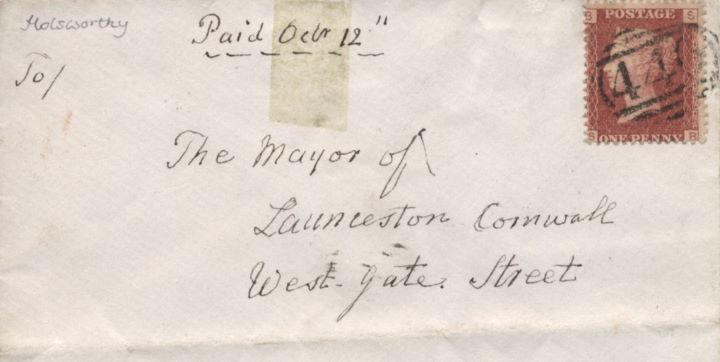 Holsworthy
Paid Octr 12"
To/
The Mayor of
Launceston Cornwall
West-Gate. Street
B S
POSTAGE
44
S B
ONE PENNY